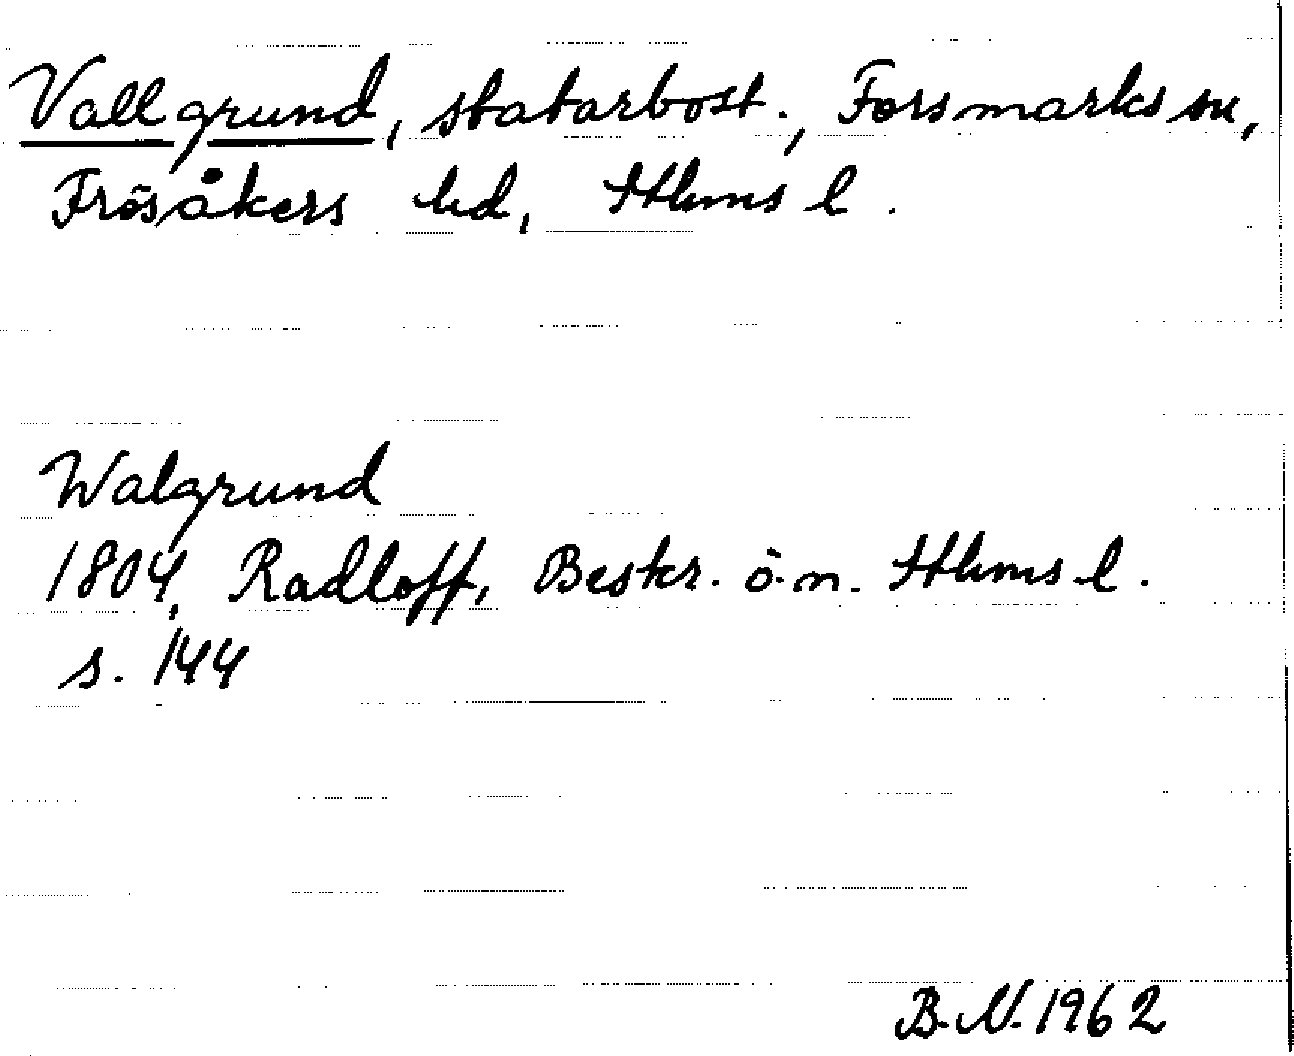 Vallgrund, statarbost., Forsmarks sn,
Frösåkers hd, Sthlms l.
Walgrund
1804, Radloff, Beskr. ö. n. Sthlms l.
s. 144
B. N. 1962